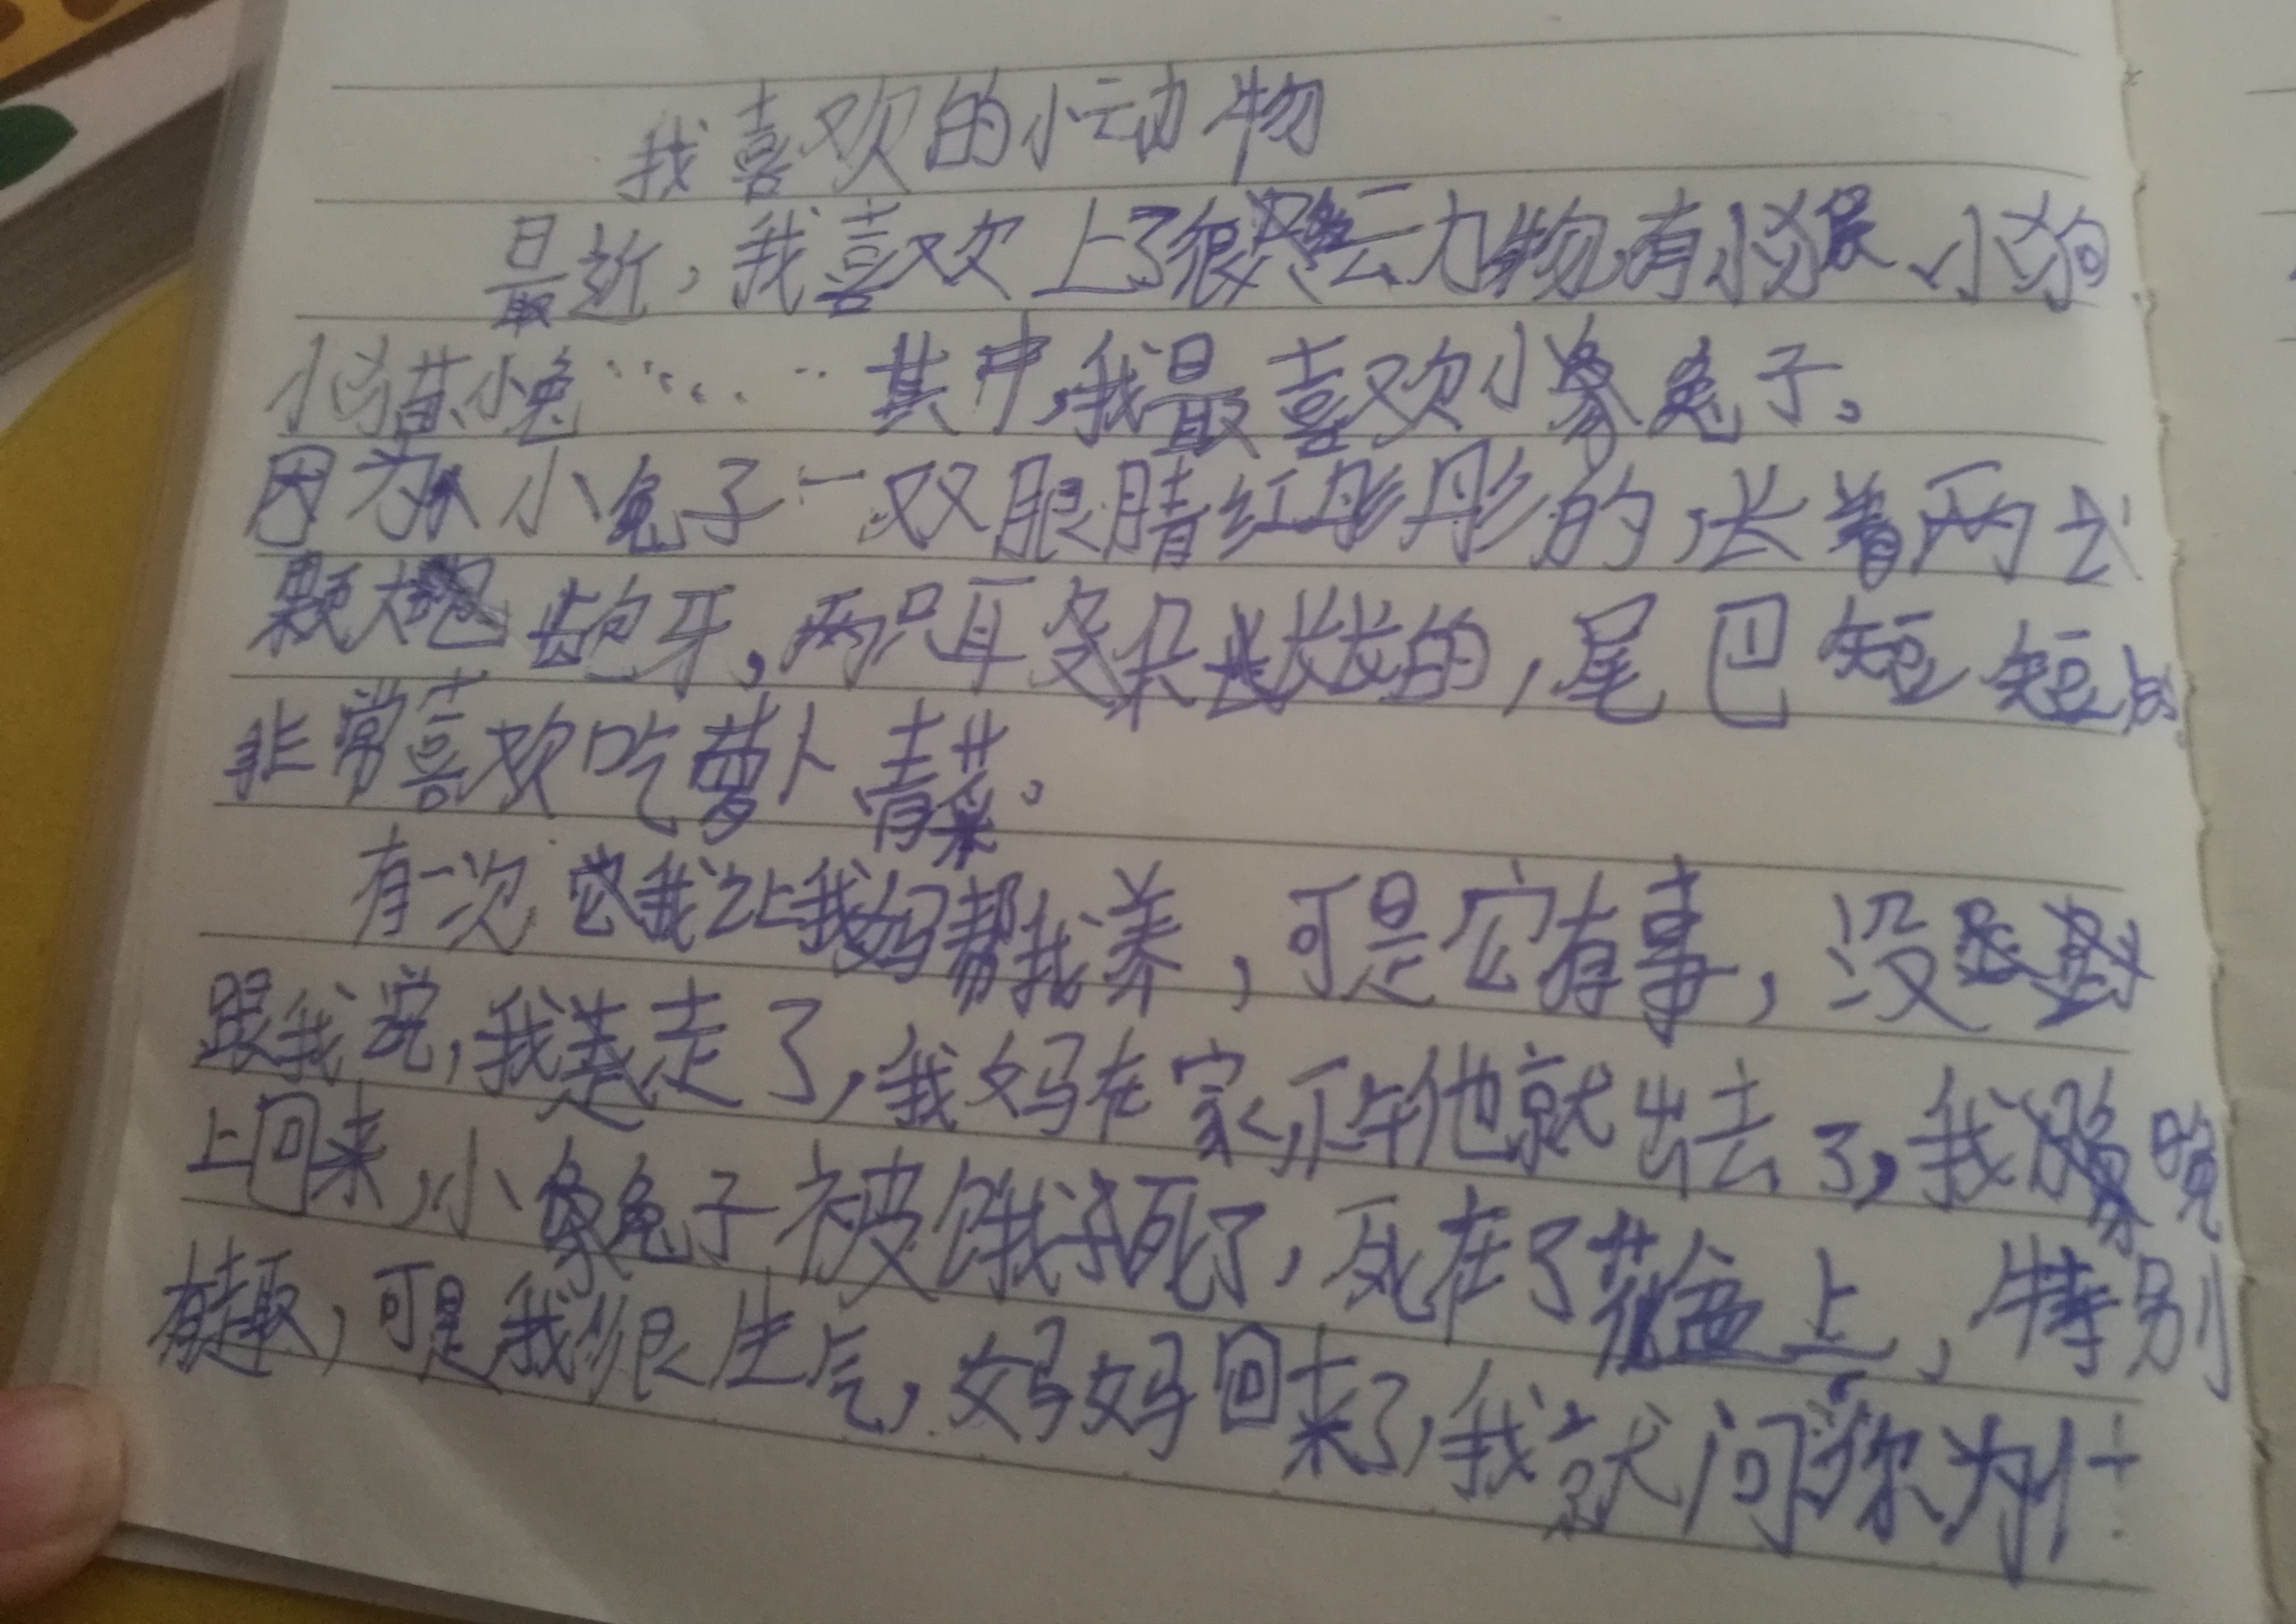 我喜欢的小动物
最近，我喜欢上了很多动物有小狼、小狗
小猫小兔……其中，我最喜欢小兔子。
因为小兔子一双眼睛红彤彤的，长着两
颗大龅牙，两只耳朵长长的，尾巴短短的
非常喜欢吃萝卜青菜。
有一次我让我妈帮我养，可是它有事，没
跟我说，我走了，我妈在家，下午他就出去了，我晚
上回来，小兔子被饿死了，死在了花盆上，特别
有趣，可是我很生气，妈妈回来了，我就问你为什